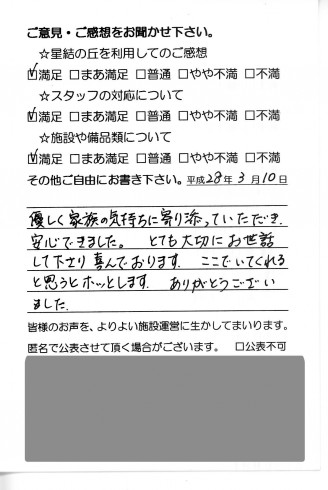 ご意見・ご感想をお聞かせ下さい。
☆星結の丘を利用してのご感想
☑満足 □まあ満足 □普通 □やや不満 □不満
☆スタッフの対応について
☑満足 □まあ満足 □普通 □やや不満 □不満
☆施設や備品類について
☑満足 □まあ満足 □普通 □やや不満 □不満
その他ご自由にお書き下さい。平成28年3月10日
優しく家族の気持ちに寄り添っていただき、
安心できました。とても大切にお世話
して下さり喜んでおります。ここでいてくれる
と思うとホッとします。ありがとうござい
ました。
皆様のお声を、よりよい施設運営に生かしてまいります。
匿名で公表させて頂く場合がございます。 □公表不可